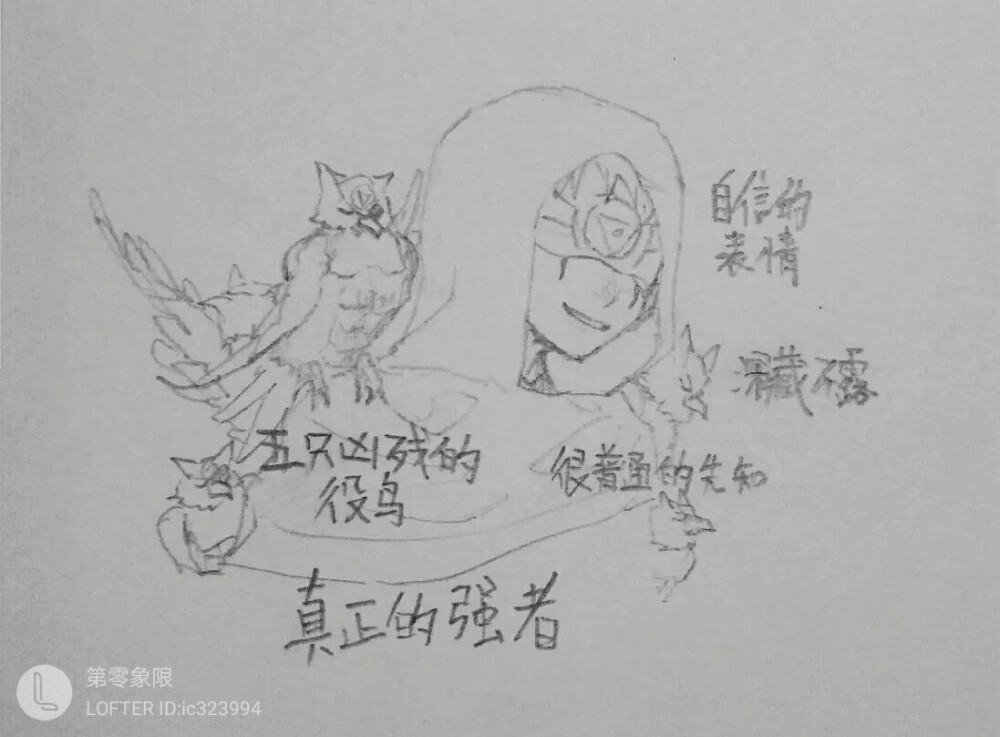 自信的
表情
深藏不露
五只凶残的
役鸟
很普通的先知
真正的强者
第零象限
LOFTER ID:ic323994